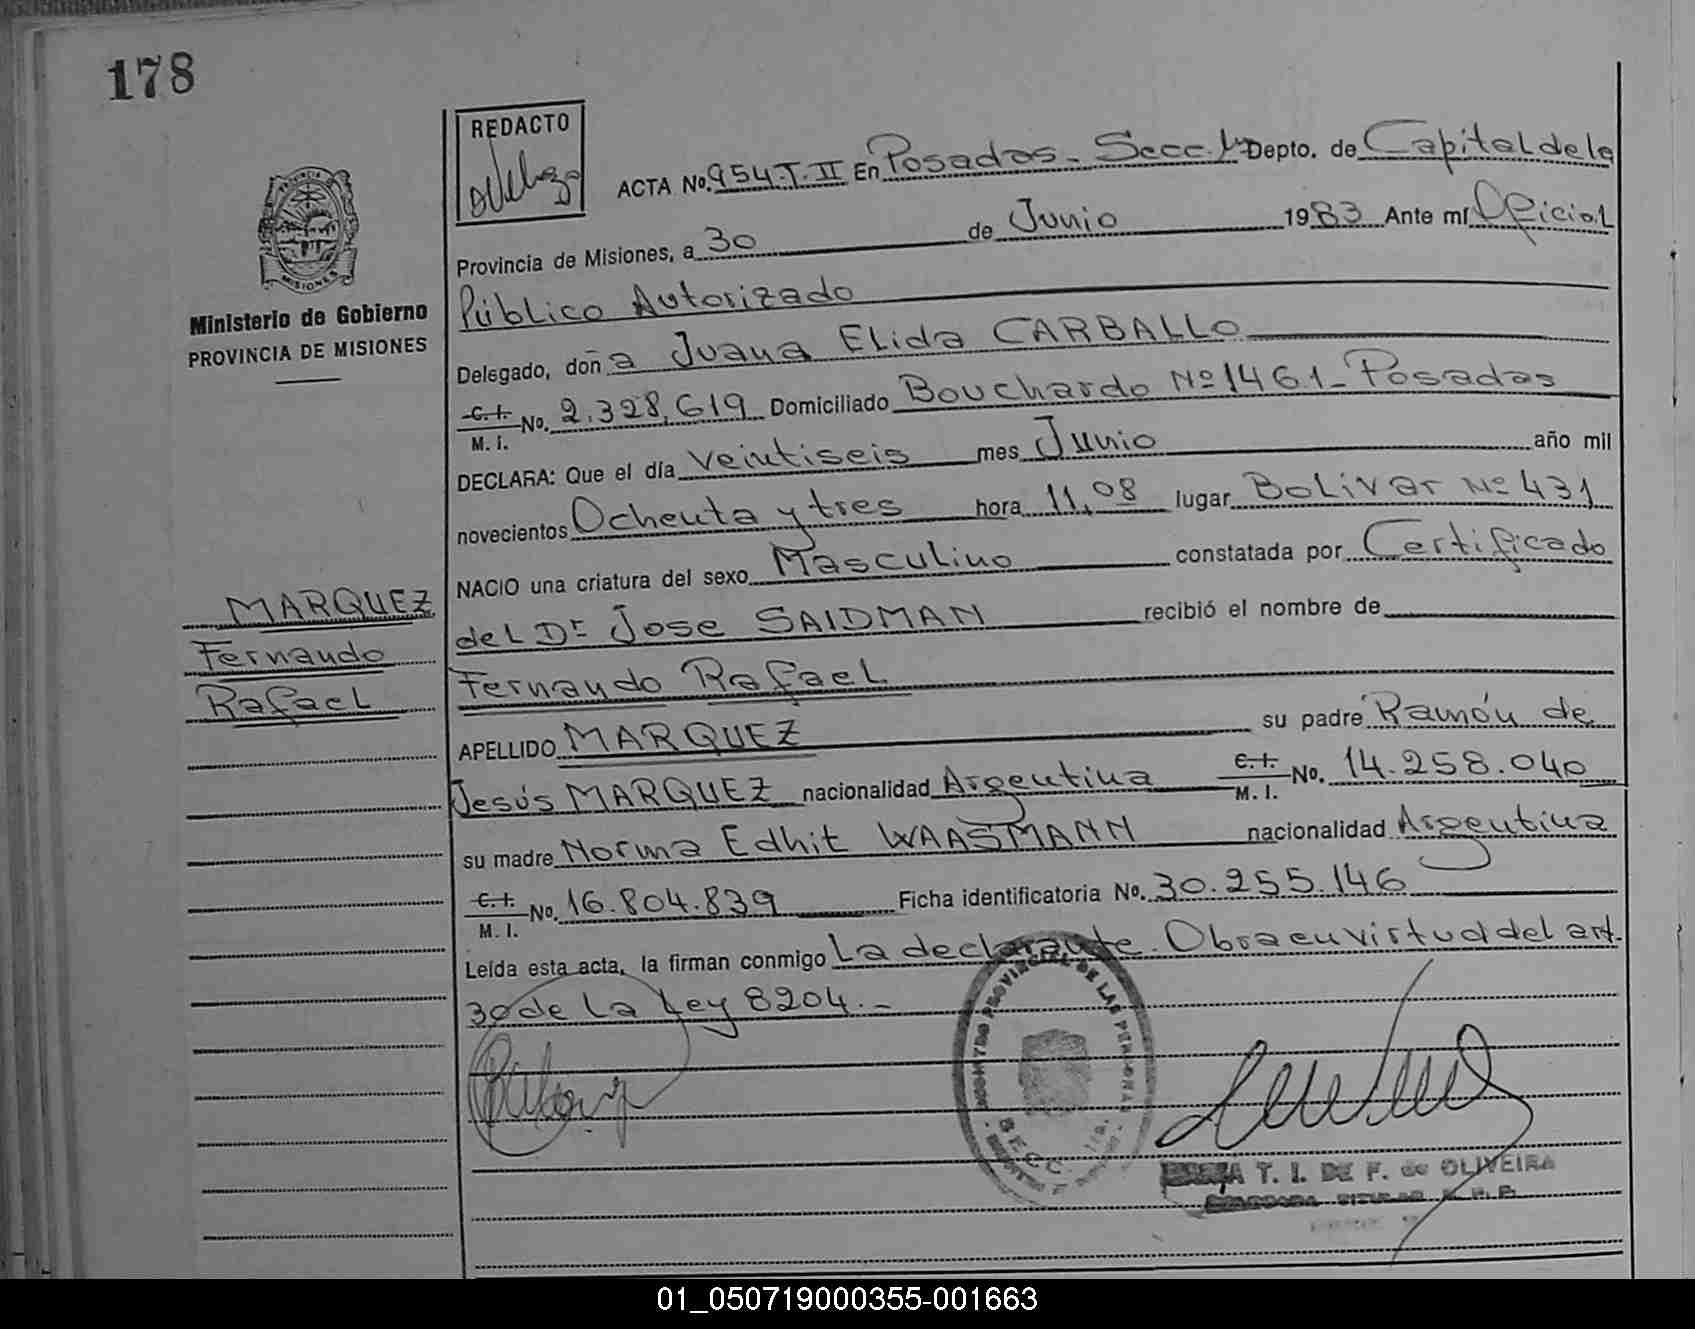 178
REDACTO
ACTA No. 954.T.II En Posadas - Secc. 1ª Depto. de Capital de la
Provincia de Misiones, a 30 de Junio 1983 Ante mí Oficial
Público Autorizado
Delegado, doña Juana Elida CARBALLO
C.I. M.I. No. 2.328.619 Domiciliado Bouchardo Nº 1461 - Posadas
DECLARA: Que el día veintiseis mes Junio año mil
novecientos Ochenta y tres hora 11,08 lugar Bolivar Nº 431
NACIO una criatura del sexo Masculino constatada por Certificado
del Dr Jose SAIDMAN recibió el nombre de
Fernando Rafael
APELLIDO MARQUEZ su padre Ramón de
Jesús MARQUEZ nacionalidad Argentina C.I. M.I. No. 14.258.040
su madre Norma Edhit WAASMANN nacionalidad Argentina
C.I. M.I. No. 16.804.839 Ficha identificatoria No. 30.255.146
Leída esta acta, la firman conmigo La declarante. Obra en virtud del art.
30 de La Ley 8204.-
PROVINCIA
MISIONES
Ministerio de Gobierno
PROVINCIA DE MISIONES
MARQUEZ
Fernando
Rafael
PROVINCIAL DE LAS PERSONAS
SECC. 1ra.
T. I. DE F. de OLIVEIRA
01_050719000355-001663